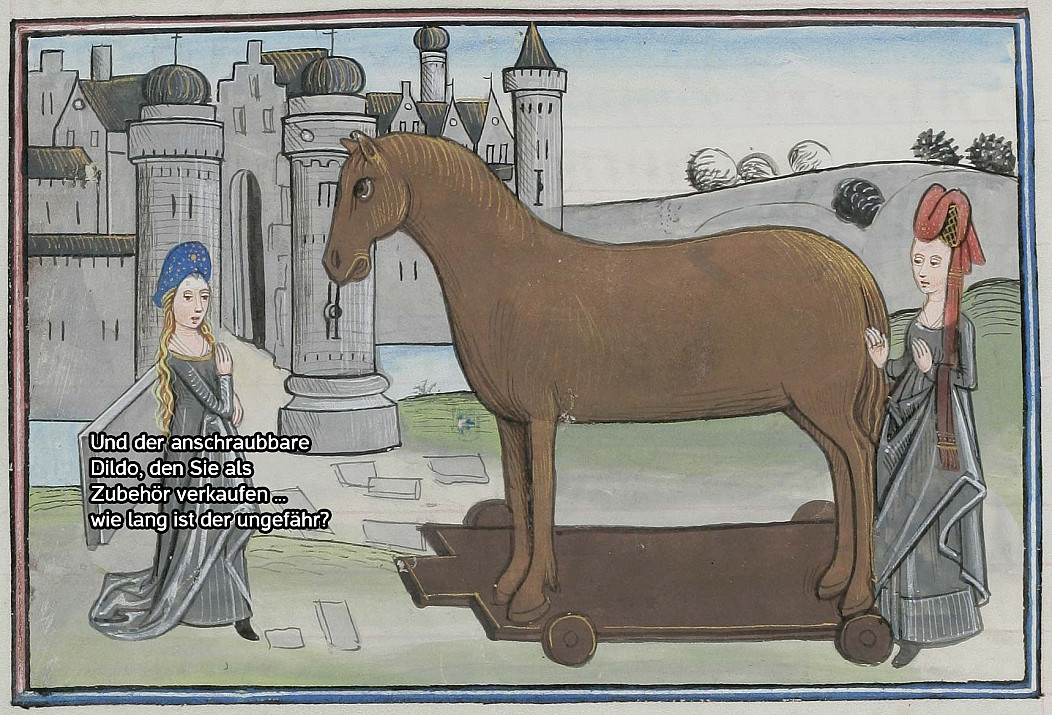 Und der anschraubbare
Dildo, den Sie als
Zubehör verkaufen ...
wie lang ist der ungefähr?